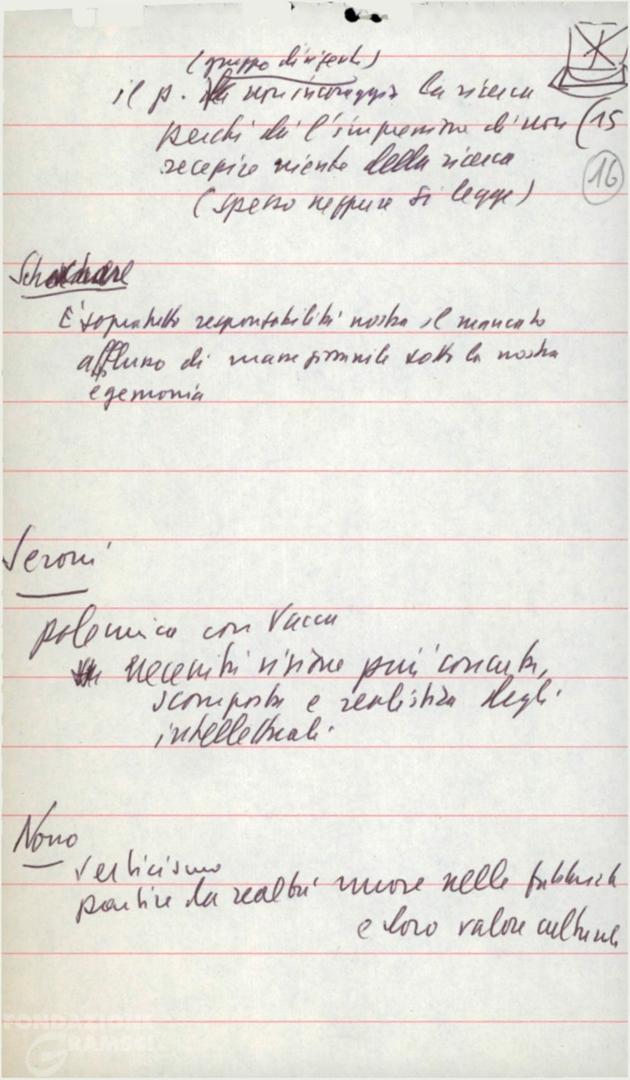 (gruppo dirigente)
il p. non incoraggia la ricerca
perché dà l'impressione di non (15
recepire niente della ricerca
16
(spesso neppure si legge)
È sopratutto responsabilità nostra il mancato
afflusso di masse giovanili sotto la nostra
egemonia
Seroni
polemica con Vacca
necessità visione più concreta,
scomposta e realistica degli
intellettuali
Nono
verticismo
partire da realtà nuove nelle fabbriche
e loro valore culturale
FONDAZIONE
GRAMSCI